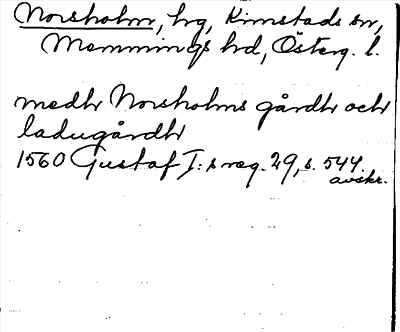 Norsholm, hg, Kimstads sn,
Memmings hd, Österg. l.
medh Norsholms gårdh och
ladugårdh
1560 Gustaf I:s reg. 29, s. 544.
avskr.